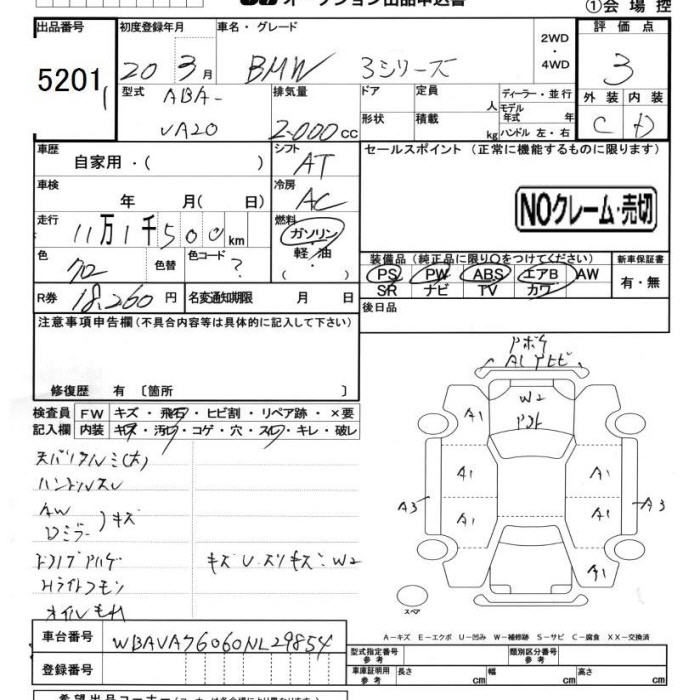 オークション出品申込書
①会場控
出品番号 初度登録年月 車名・グレード 2WD・4WD 評価点
5201 20 3月 BMW 3シリーズ 3
型式 排気量 ドア 定員 人 ディーラー・並行 外装 内装
ABA-VA20 2000cc 形状 積載 kg モデル年式 年 C D
ハンドル 左・右
車歴 自家用・( ) シフト AT セールスポイント (正常に機能するものに限ります)
車検 年 月( 日) 冷房 AC
NOクレーム・売切
走行 11万1千500km 燃料 ガソリン・軽油・( )
色 クロ 色替 色コード ? 装備品 (純正品に限り○をつけてください) 新車保証書
PS PW ABS エアB AW 有・無
SR ナビ TV カワ
R券 18,260円 名変通知期限 月 日 後日品
注意事項申告欄 (不具合内容等は具体的に記入して下さい)
修復歴 有 〔箇所 〕
検査員記入欄 FW キズ・飛石・ヒビ割・リペア跡・×要
内装 キズ・汚れ・コゲ・穴・スレ・キレ・破レ
ハンドルスレ
AW
Dミラー )キズ
キズUスリキズ:W2
オイルもれ
A1 W2
A1 A1
A3 A1 A1 A3
A1
スペア
A-キズ E-エクボ U-凹み W-補修跡 S-サビ C-腐食 XX-交換済
車台番号 WBAVA76060NL29854
型式指定番号 参考 類別区分番号 参考
登録番号 車庫証明用 参考 長さ cm 幅 cm 高さ cm